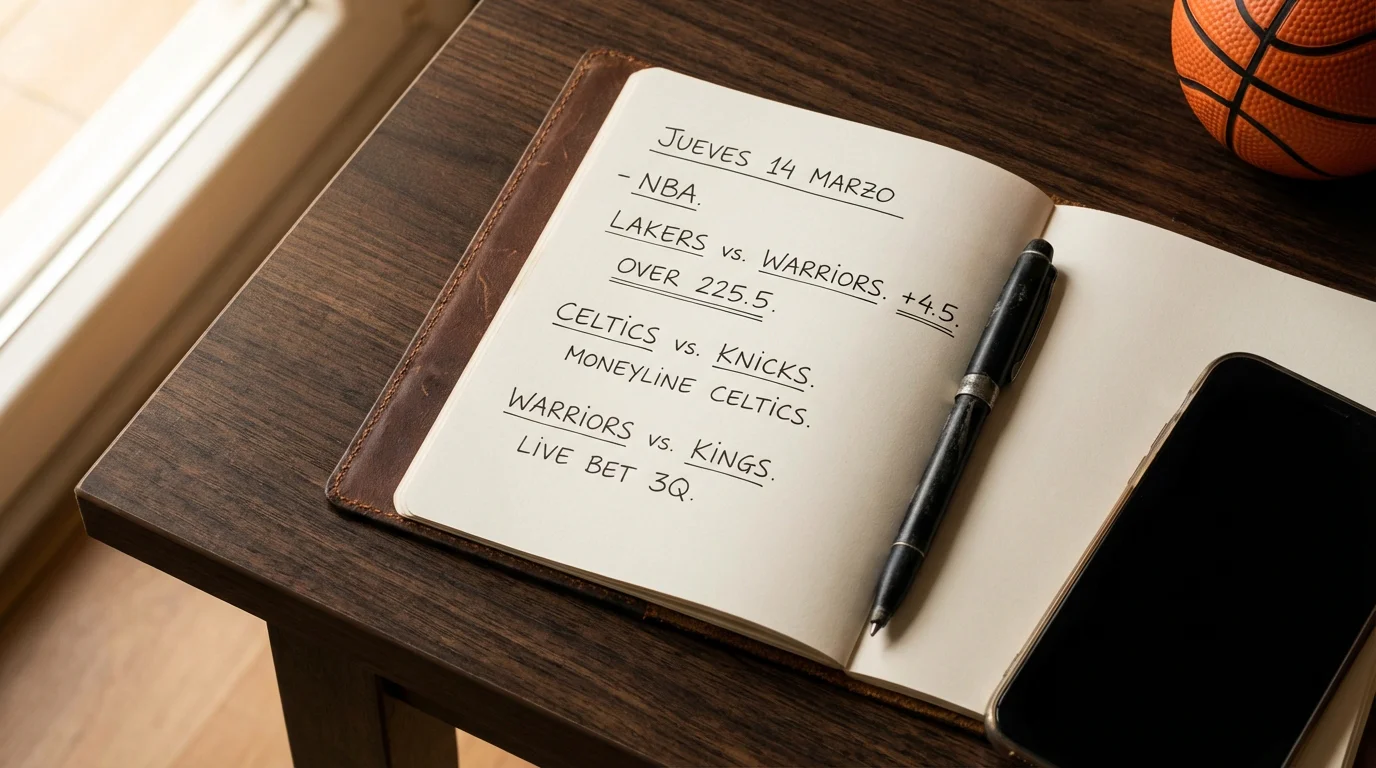 JUEVES 14 MARZO
- NBA.
LAKERS vs. WARRiORS. +4.5.
OVER 225.5.
CELTiCS vs. KNiCKS.
MONEYLiNE CELTiCS.
WARRiORS vs. KiNGS.
LiVE BET 3Q.